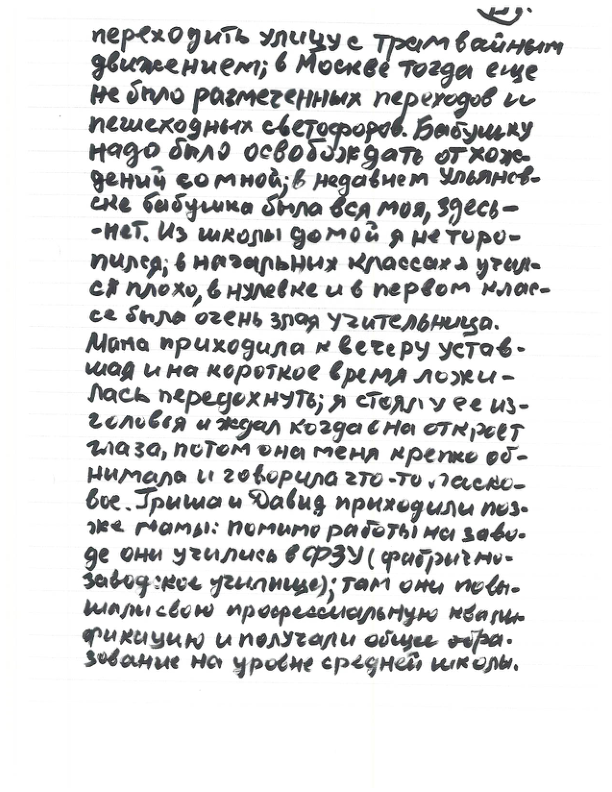 переходить улицу с трамвайным
движением; в Москве тогда еще
не было размеченных переходов и
пешеходных светофоров. Бабушку
надо было освобождать от хож-
дений со мной; в недавнем Ульянов-
ске бабушка была вся моя, здесь-
-нет. Из школы домой я не торо-
пился; в начальных классах я учил-
ся плохо, в нулевке и в первом клас-
се была очень злая учительница.
Мама приходила к вечеру устав-
шая и на короткое время ложи-
лась передохнуть; я стоял у ее из-
головья и ждал когда она откроет
глаза, потом она меня крепко об-
нимала и говорила что-то ласко-
вое. Гриша и Давид приходили поз-
же мамы: помимо работы на заво-
де они учились в ФЗУ (фабрично-
заводское училище); там они повы-
шали свою профессиальную квали-
фикацию и получали общее обра-
зование на уровне средней школы.